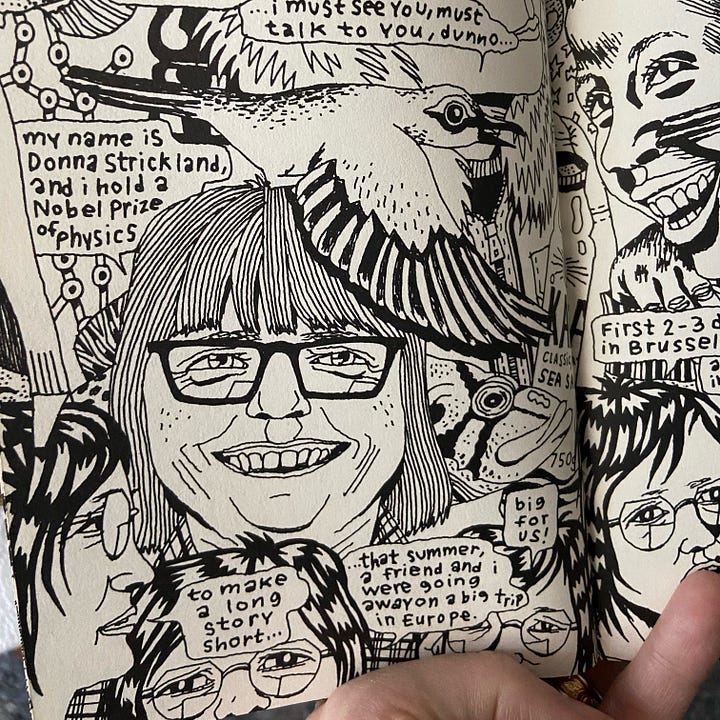 ...i must see you, must
talk to you, dunno...
my name is
Donna Strickland,
and i hold a
Nobel Prize
of physics
CLASSIC
SEA S
750g
big
for
us!
...that summer,
a friend and i
were going
away on a big trip
in Europe.
to make
a long
story
short...
First 2-3 d
in Brussel